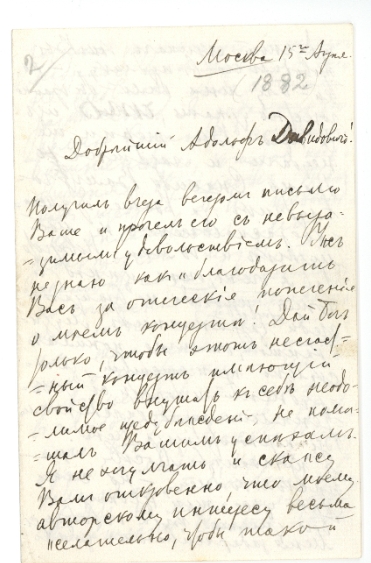 2
Москва 15го Апр.
1882
Добрѣйшій Адольфъ Давидовичъ!
Получилъ вчера вечеромъ письмо
Ваше и прочелъ его съ невыра-
-зимымъ удовольствіемъ. Ужъ
не знаю какъ и благодарить
Васъ за отческія попеченія
о моемъ концертѣ! Дай Богъ
только, чтобы этотъ несчаст-
-ный концертъ имѣющій
свойство внушать къ себѣ необо-
-лимое предубѣжденіе, не помѣ-
-шалъ Вашимъ успѣхамъ.
Я не хочу лгать и скажу
Вамъ откровенно, что моему
авторскому интересу весьма
желательно, чтобы тако-й